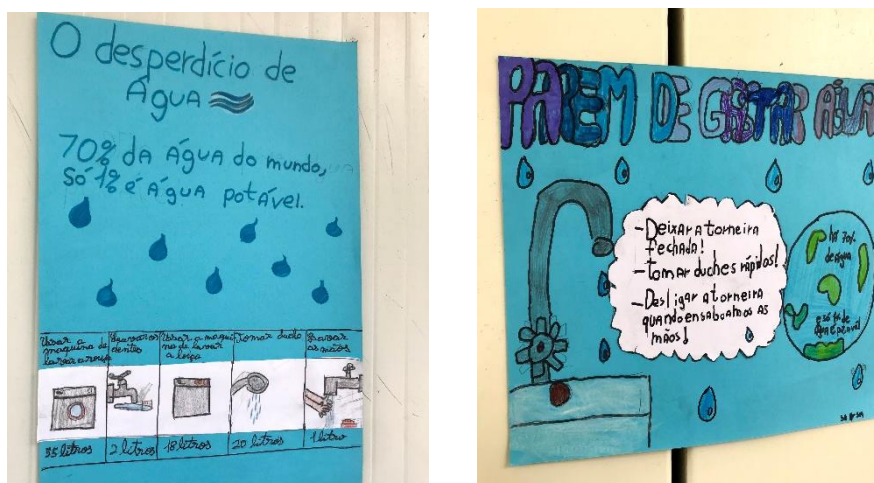 O desperdício de
Água
70% da Água do mundo,
só 1% é Água potável.
Usar a
maquina de
lavar a roupa
Lavar os
dentes
Usar a maqui
na de lavar
a loiça
Tomar duche
Lavar
as mãos
35 litros
2 litros
18 litros
20 litros
1 litro
PAREM DE GASTAR ÁGUA
-Deixar a torneira
fechada!
-Tomar duches rápidos!
-Desligar a torneira
quando ensaboamos as
mãos!
há 70%
de água
e só 1% de
água é